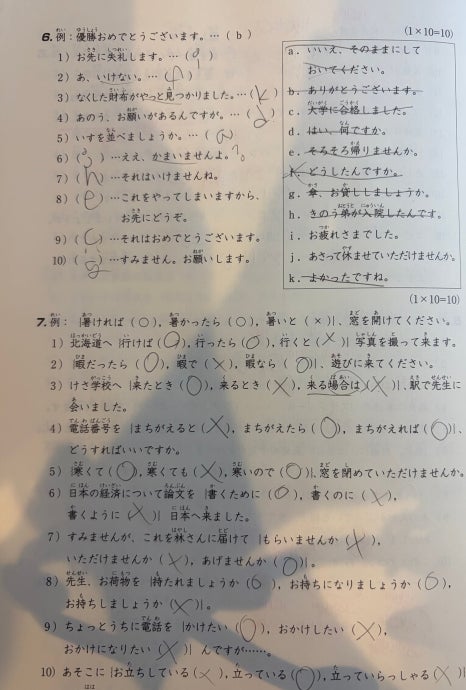 6. 例：優勝おめでとうございます。…（b） （1×10=10）
1）お先に失礼します。…（i）
2）あ、いけない。…（f）
3）なくした財布がやっと見つかりました。…（k）
4）あのう、お願いがあるんですが。…（d）
5）いすを並べましょうか。…（a）
6）（j）…ええ、かまいませんよ。
7）（h）…それはいけませんね。
8）（e）…これをやってしまいますから、
お先にどうぞ。
9）（c）…それはおめでとうございます。
10）（g）…すみません。お願いします。
a．いいえ、そのままにして
おいてください。
b．ありがとうございます。
c．大学に合格しました。
d．はい、何ですか。
e．そろそろ帰りませんか。
f．どうしたんですか。
g．傘、お貸ししましょうか。
h．きのう弟が入院したんです。
i．お疲れさまでした。
j．あさって休ませていただけませんか。
k．よかったですね。
（1×10=10）
7. 例：｛暑ければ（○），暑かったら（○），暑いと（×）｝、窓を開けてください。
1）北海道へ｛行けば（○），行ったら（○），行くと（×）｝写真を撮って来ます。
2）｛暇だったら（○），暇で（×），暇なら（○）｝、遊びに来てください。
3）けさ学校へ｛来たとき（○），来るとき（×），来る場合は（×）｝、駅で先生に
会いました。
4）電話番号を｛まちがえると（×），まちがえたら（○），まちがえれば（○）｝、
どうすればいいですか。
5）｛寒くて（○），寒くても（×），寒いので（○）｝、窓を閉めていただけませんか。
6）日本の経済について論文を｛書くために（○），書くのに（×），
書くように（×）｝日本へ来ました。
7）すみませんが、これを林さんに届けて｛もらいませんか（×），
いただけませんか（×），あげませんか（○）｝。
8）先生、お荷物を｛持たれましょうか（○），お持ちになりましょうか（○），
お持ちしましょうか（×）｝。
9）ちょっとうちに電話を｛かけたい（○），おかけしたい（×），
おかけになりたい（×）｝んですが……。
10）あそこに｛お立ちしている（×），立っている（○），立っていらっしゃる（×）｝